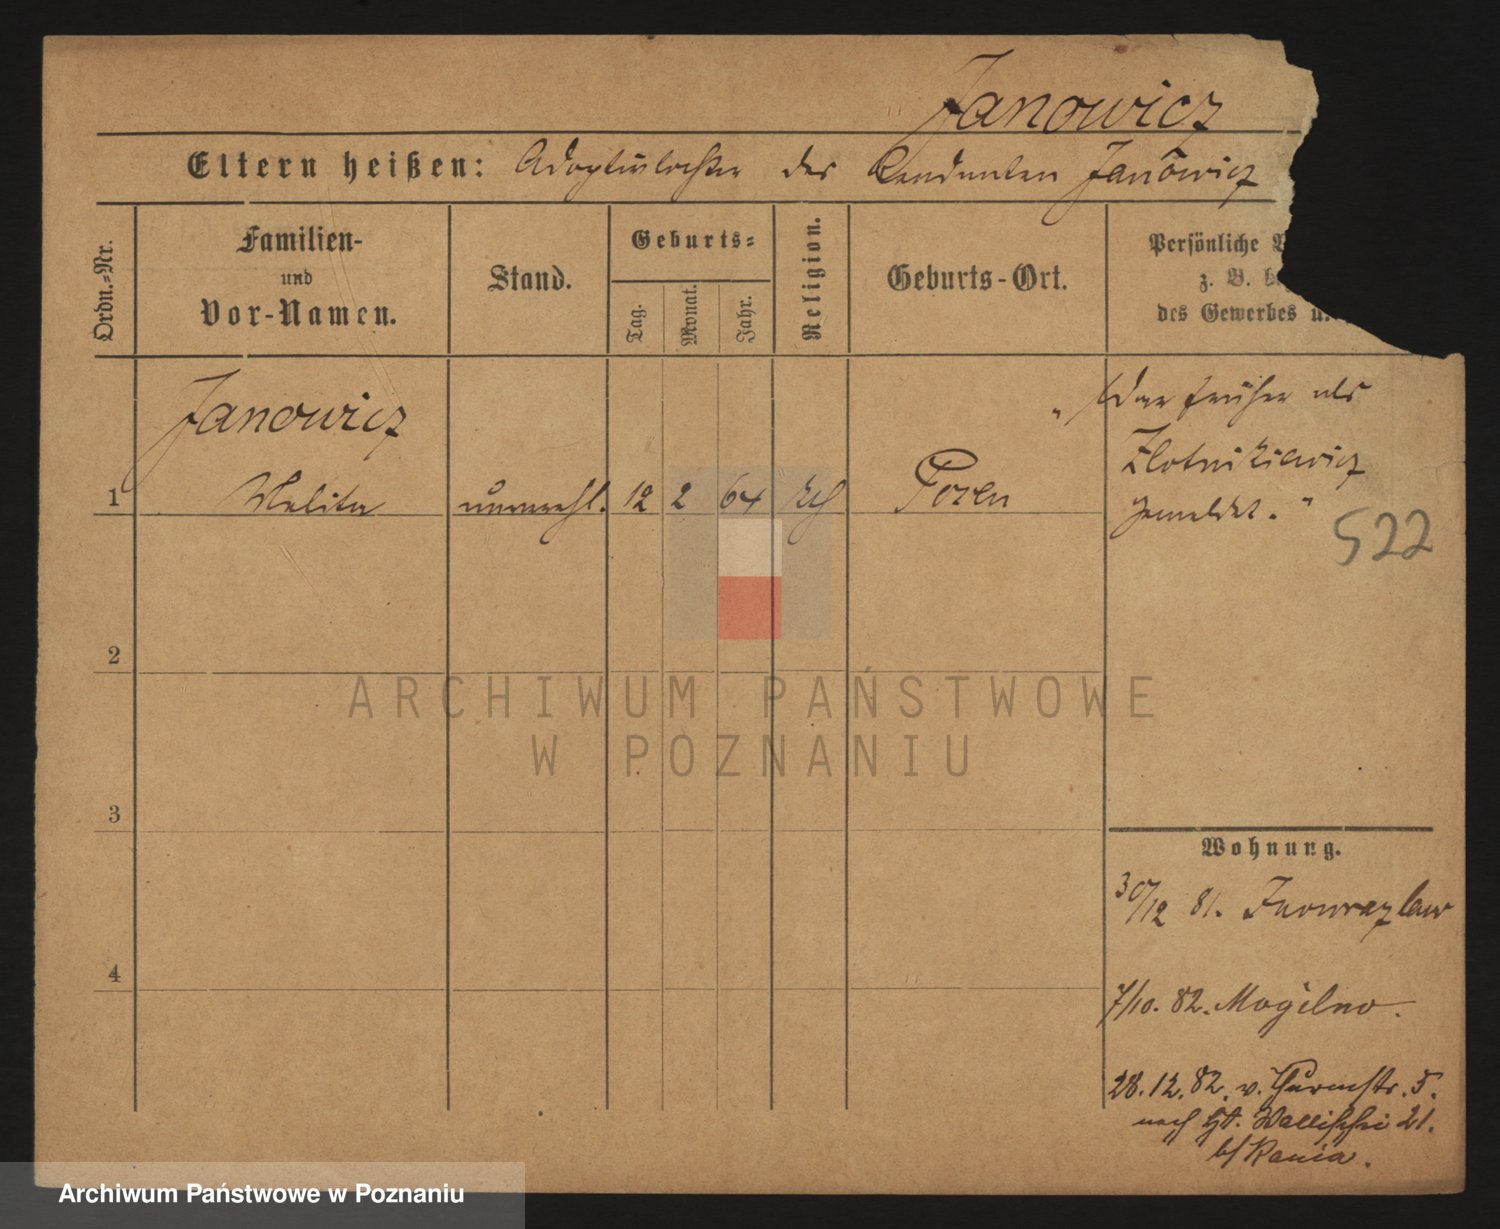 Janowicz
Eltern heißen: Adoptivtochter des Rendanten Janowicz
Ordn.=Nr.
Familien-
und
Vor-Namen.
Stand.
Geburts=
Tag.
Monat.
Jahr.
Religion.
Geburts-Ort.
Persönliche
z. B.
des Gewerbes
Janowicz
1 Melita unverehl. 12 2 64 kth Posen
„War früher als
Zlotnikiewicz
gemeldet."
522
2
3
4
Wohnung.
30/12 81. Inowrazlaw
7/10. 82. Mogilno.
28.12.82. v. Thurmstr. 5.
nach hr. Wallischei 21.
b/ Kania.
ARCHIWUM PAŃSTWOWE
W POZNANIU
Archiwum Państwowe w Poznaniu